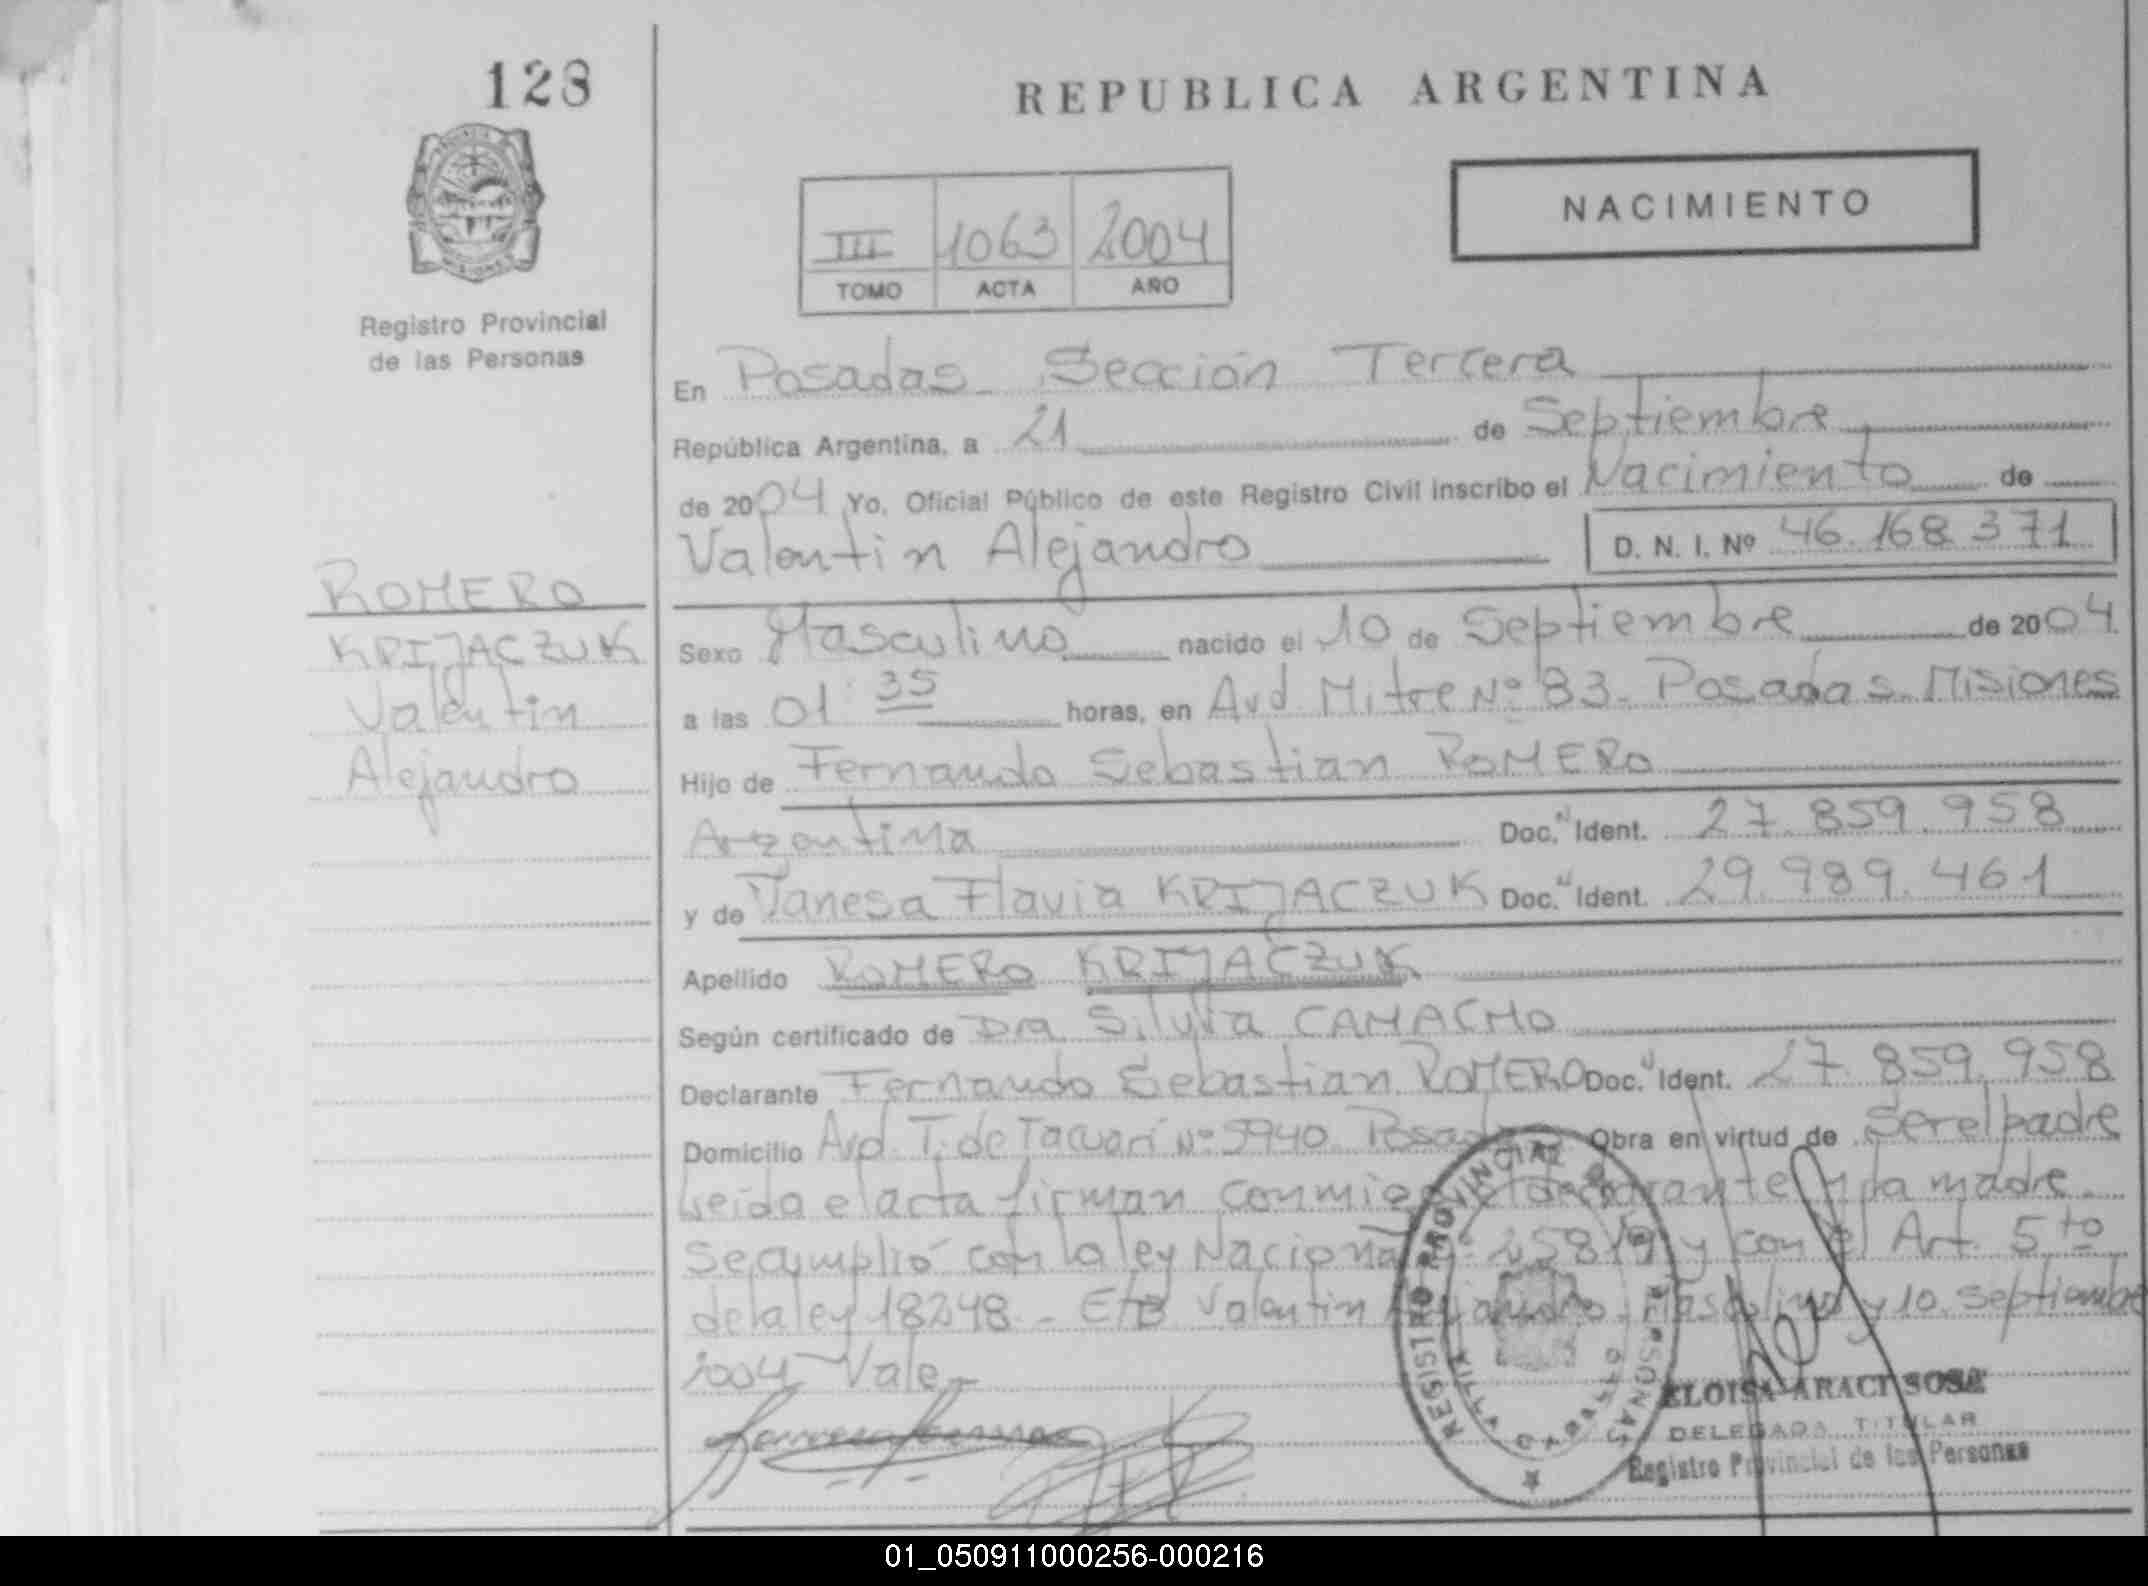 128
REPUBLICA ARGENTINA
NACIMIENTO
III 1063 2004
TOMO ACTA AÑO
Registro Provincial
de las Personas
En Posadas Sección Tercera
República Argentina, a 21 de Septiembre
de 2004 Yo, Oficial Público de este Registro Civil inscribo el Nacimiento de
Valentin Alejandro D. N. I. Nº 46.168.371
ROMERO
KRIJACZUK
Valentin
Alejandro
Sexo Masculino nacido el 10 de Septiembre de 2004
a las 01 35 horas, en Avd Mitre Nº 83. Posadas Misiones
Hijo de Fernando Sebastian ROMERO
Argentina Doc. Ident. 27.859.958
y de Vanesa Flavia KRIJACZUK Doc. Ident. 29.989.461
Apellido ROMERO KRIJACZUK
Según certificado de Dra Silvia CAMACHO
Declarante Fernando Sebastian ROMERO Doc. Ident. 27.859.958
Domicilio Avd. T. de Tacuarí Nº 5940. Posadas Obra en virtud de Ser el padre
Leida el acta firman conmigo el declarante y la madre.
Se cumplió con la ley Nacional 25819 y con el Art. 5to
de la ley 18248. - E/B Valentin Alejandro. Masculino y 10. Septiembre
2004 Vale -
REGISTRO PROVINCIAL DE
ELOISA ARACI SOSA
DELEGADA TITULAR
Registro Provincial de las Personas
01_050911000256-000216